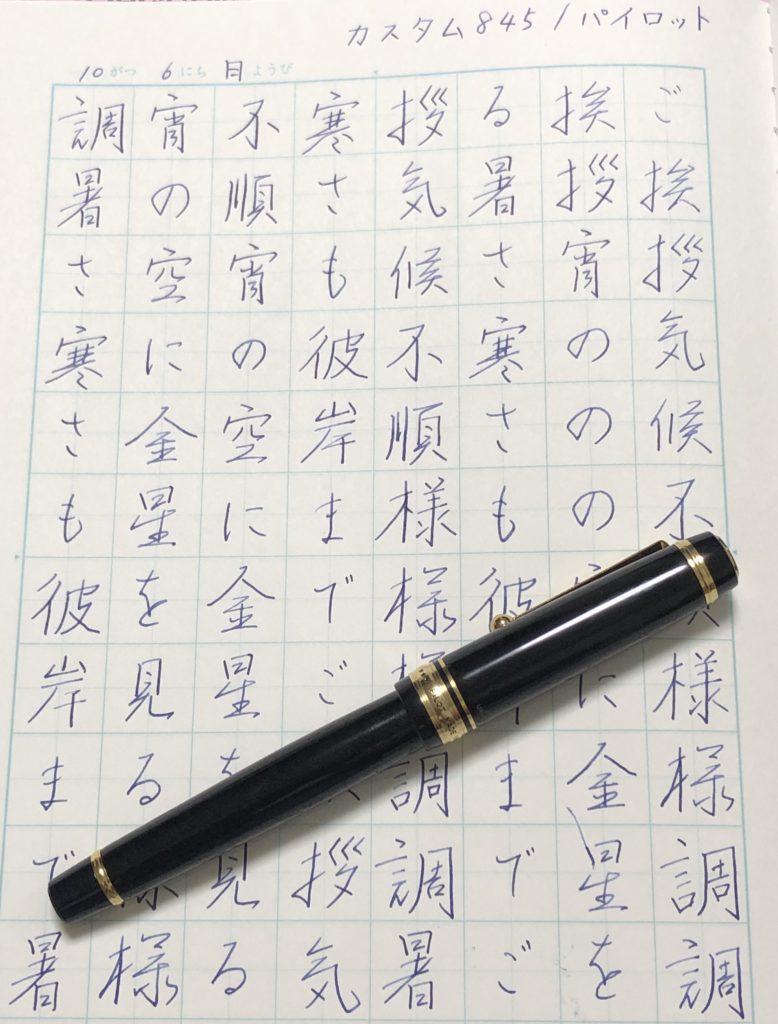 カスタム845/パイロット
10がつ 6にち 日ようび
ご挨拶気候不様様調調
挨拶宵のののに金星を
る暑さ寒さも彼までご
拶気候不順様様調調暑
寒さも彼岸までご拶気
不順宵の空に金星を見る
宵の空に金星を見る様様
調暑さ寒さも彼岸まで暑